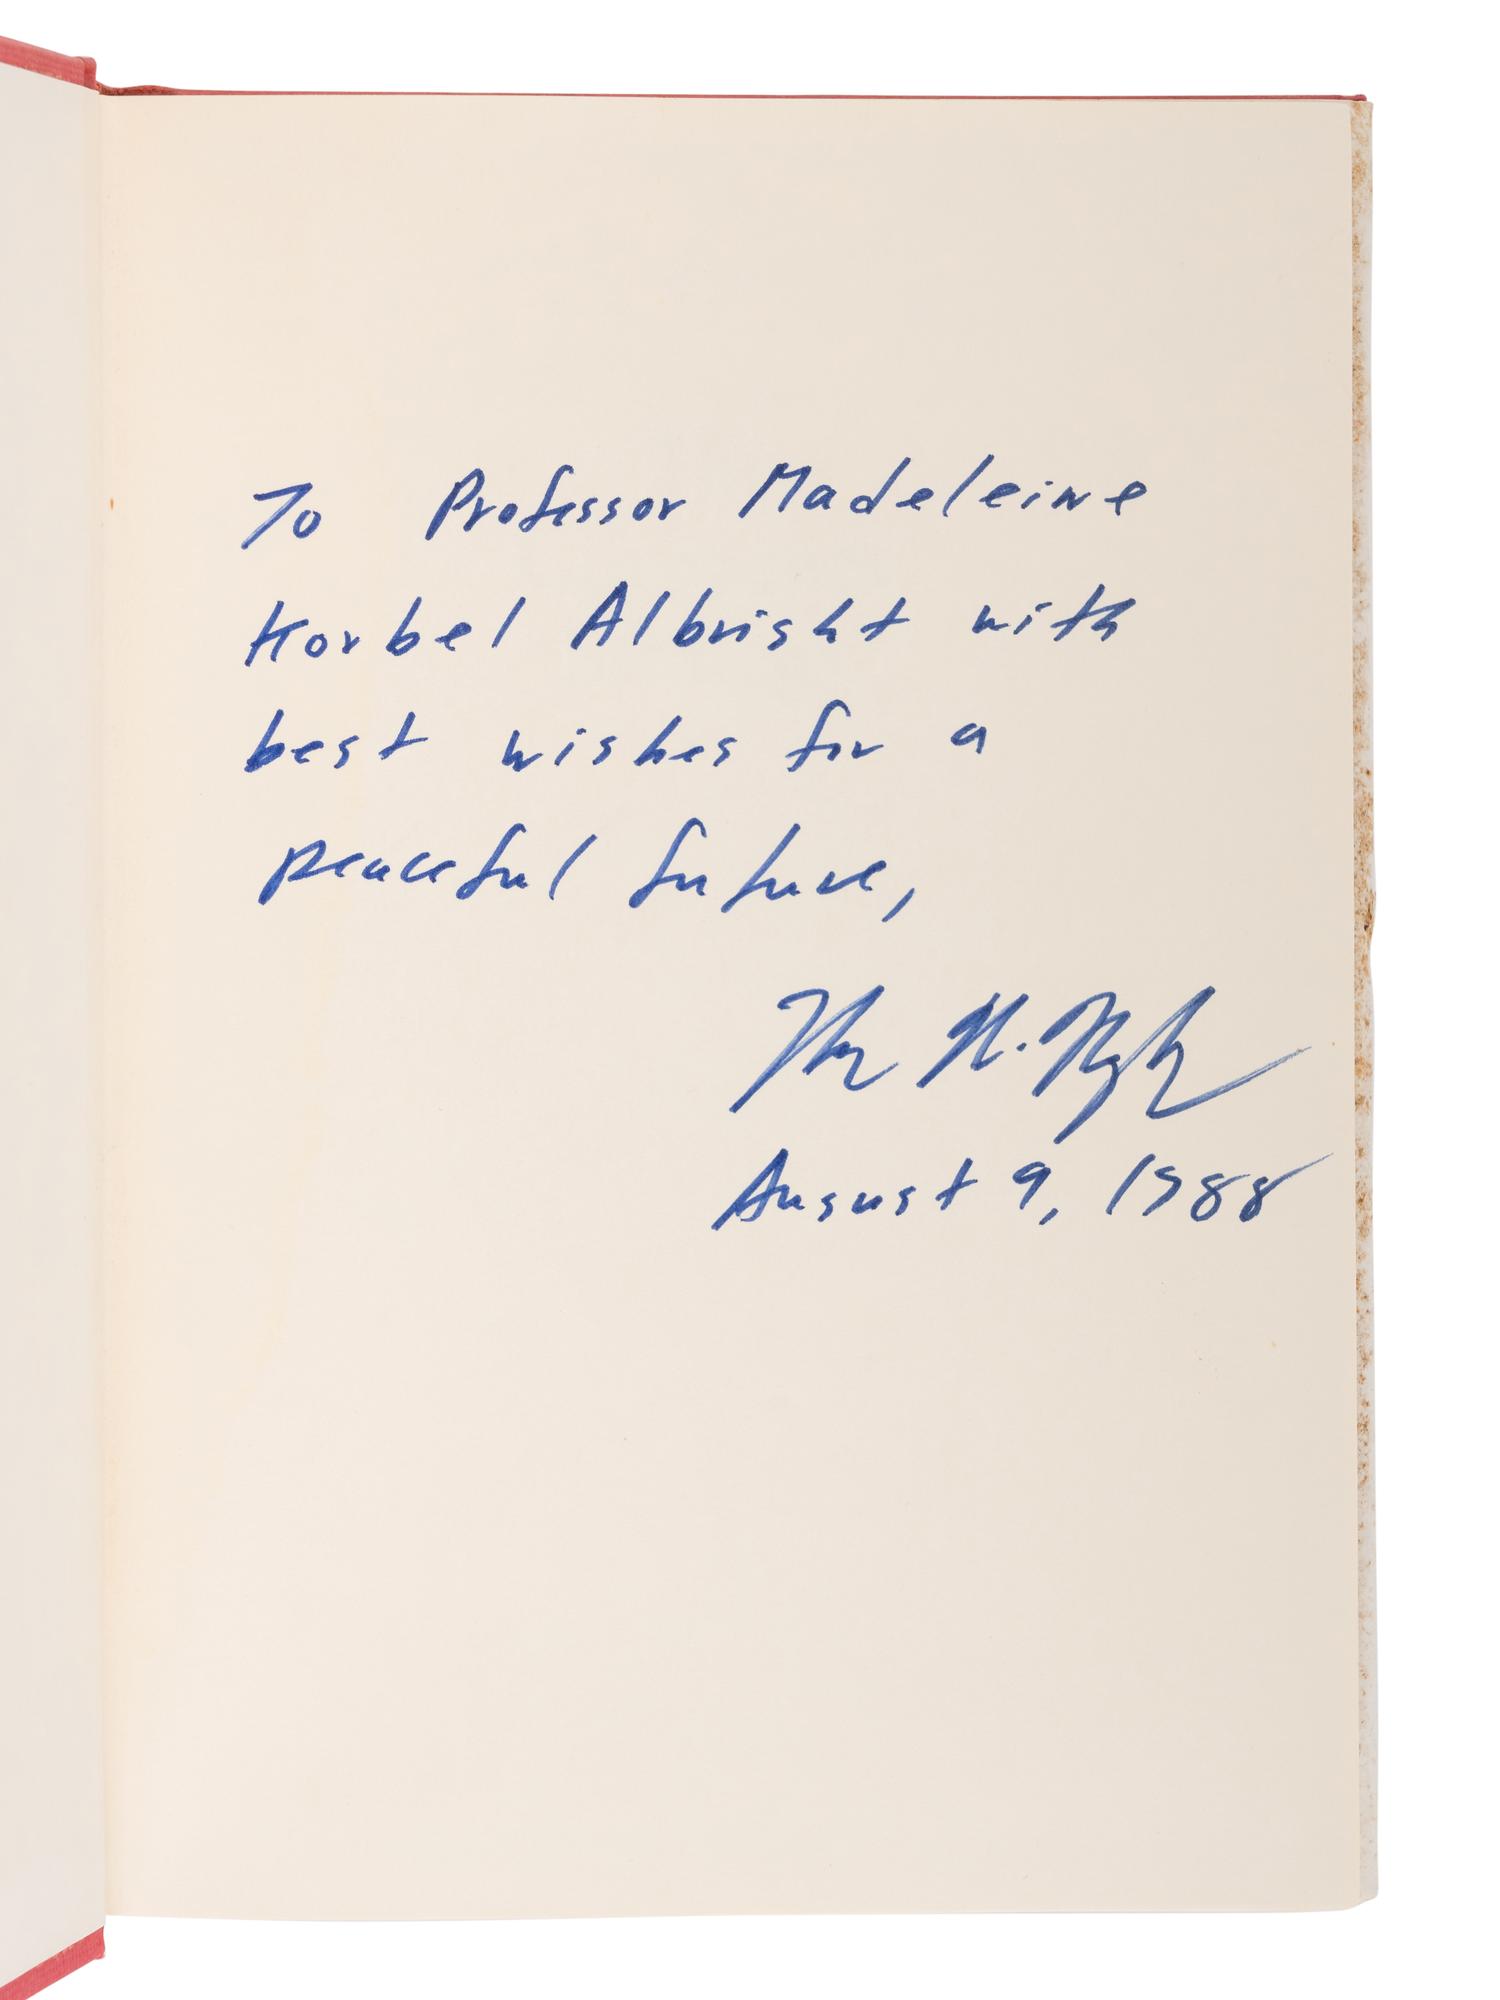 To Professor Madeleine
Korbel Albright with
best wishes for a
peaceful future,
August 9, 1988